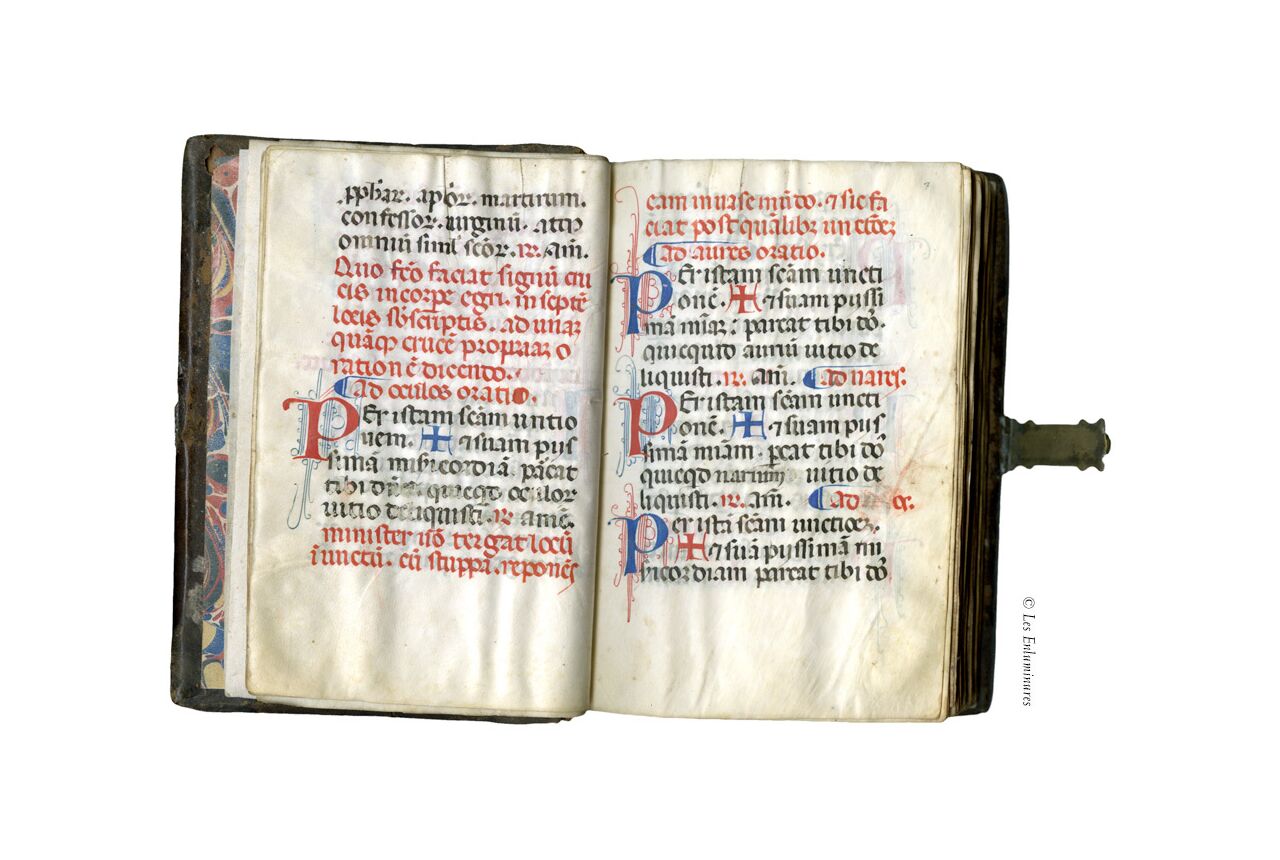 .pphar. aplor. martirum.
confessor. virginū. atq
omniū simul scōr. R. Am̄.
Quo fc̄o faciat signū cru
cis in corpe egri. in septē
locis subscriptis. ad unāq
quāqȝ crucē propriaȝ o
rationē dicendo.
Ad oculos oratio.
Per istam scām unctio
nem. ✠ ⁊ suam pijs
simā misericordiā. parcat
tibi dn̄s quicqd oculor
uitio deliquisti. R. amē.
minister uō tergat locū
īunctū. cū stuppa. reponēs
eam in uase mūdo. ⁊ sic fa
ciat post quālibȝ unctōeȝ
Ad aures oratio.
Per istam scām uncti
onē. ✠ ⁊ suam pijssi
mā miāȝ. parcat tibi dō.
quicquid auriū uitio de
liquisti. R. am̄. Ad nares.
Per istam scām uncti
onē. ✠ ⁊ suam pijs
simā miam. pcat tibi dō
quicqd narium uitio de
liquisti. R. am̄. Ad
Per istā scam unctioeȝ.
✠ ⁊ suā pijssimā mi
sicordiam parcat tibi dō
© Les Enluminures